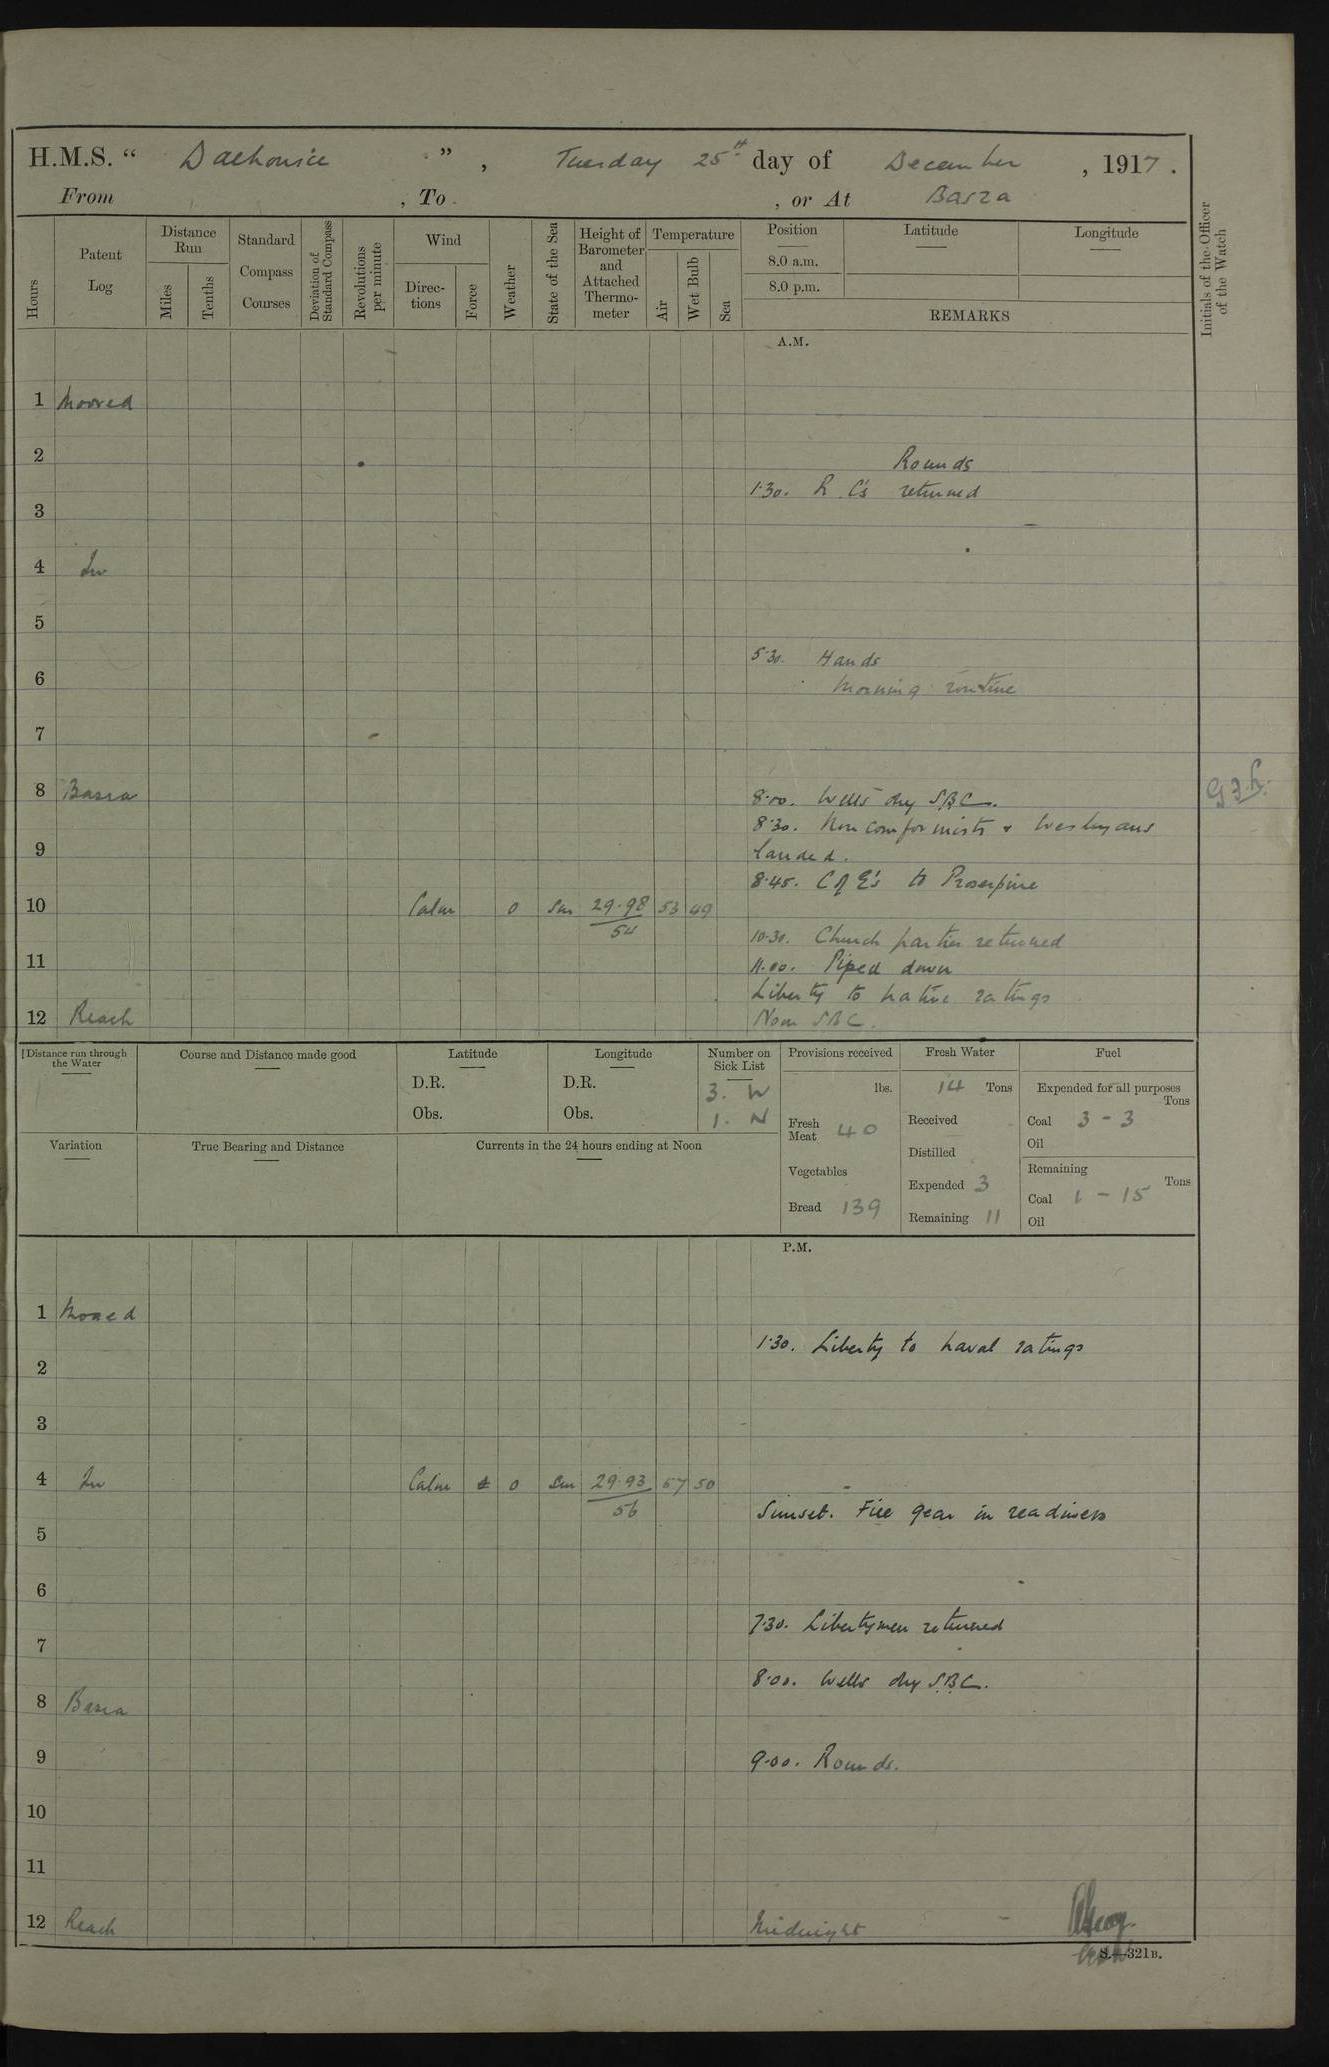 H.M.S. “ Dalhousie ” , Tuesday 25th day of December , 1917 .
From , To , or At Basra
Hours
Patent Log
Distance Run
Miles
Tenths
Standard Compass Courses
Deviation of Standard Compass
Revolutions per minute
Wind
Direc-tions
Force
Weather
State of the Sea
Height of Barometer and Attached Thermo-meter
Temperature
Air
Wet Bulb
Sea
Position
8.0 a.m.
8.0 p.m.
Latitude
Longitude
REMARKS
Initials of the Officer of the Watch
A.M.
1 Moored
2 Rounds
1.30. R.C's returned
3
4 In
5
5.30. Hands
6 Morning routine
7
8 Basra
8.00. Wells dry S.B.C.
8.30. Non conformists & Wesleyans
9 landed.
8.45. C of E's to Proserpine
10 Calm 0 Sm 29.98 53 49
54
10.30. Church parties returned
11 11.00. Piped down
Liberty to native ratings
12 Reach Noon S.B.C.
Distance run through the Water
Course and Distance made good
Latitude
D.R.
Obs.
Longitude
D.R.
Obs.
Number on Sick List
3. W
1. N
Variation
True Bearing and Distance
Currents in the 24 hours ending at Noon
Provisions received
lbs.
Fresh Meat 40
Vegetables
Bread 139
Fresh Water
14 Tons
Received
Distilled
Expended 3
Remaining 11
Fuel
Expended for all purposes
Tons
Coal 3 - 3
Oil
Remaining
Tons
Coal 1 - 15
Oil
P.M.
1 Moored
1.30. Liberty to naval ratings
2
3
4 In Calm 0 Sm 29.93 57 50
56
Sunset. Fire gear in readiness
5
6
7.30. Libertymen returned
7
8.00. Wells dry S.B.C.
8 Basra
9 9.00. Rounds.
10
11
12 Reach Midnight
S.—321B.